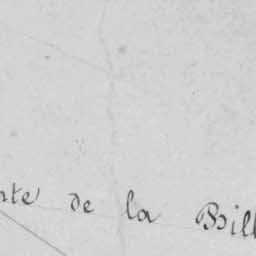 ste de la Bill